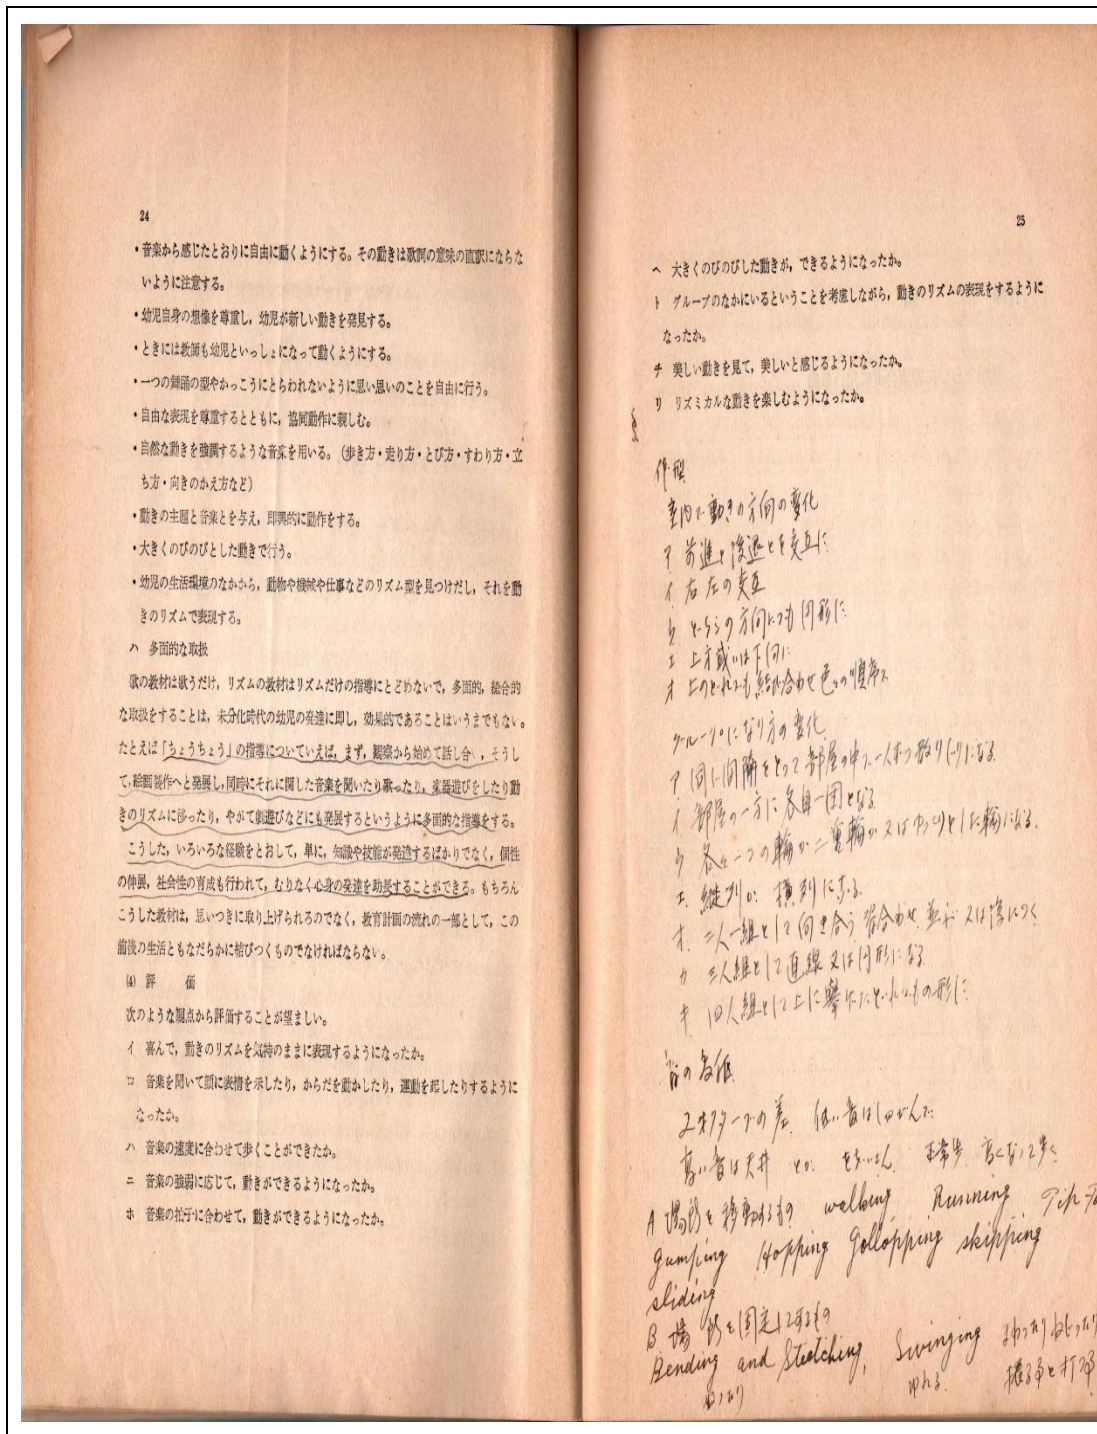 24
・音楽から感じたとおりに自由に動くようにする。その動きは歌詞の意味の直訳にならな
いように注意する。
・幼児自身の想像を尊重し，幼児が新しい動きを発見する。
・ときには教師も幼児といっしょになって動くようにする。
・一つの舞踊の型やかっこうにとらわれないように思い思いのことを自由に行う。
・自由な表現を尊重するとともに，協同動作に親しむ。
・自然な動きを強調するような音楽を用いる。（歩き方・走り方・とび方・すわり方・立
ち方・向きのかえ方など）
・動きの主題と音楽とを与え，即興的に動作をする。
・大きくのびのびとした動きで行う。
・幼児の生活環境のなかから，動物や機械や仕事などのリズム型を見つけだし，それを動
きのリズムで表現する。
ハ 多面的な取扱
歌の教材は歌うだけ，リズムの教材はリズムだけの指導にとどめないで，多面的，総合的
な取扱をすることは，未分化時代の幼児の発達に即し，効果的であることはいうまでもない。
たとえば「ちょうちょう」の指導についていえば，まず，観察から始めて話し合い，そうし
て，絵画製作へと発展し，同時にそれに関した音楽を聞いたり歌ったり，楽器遊びをしたり動
きのリズムに移ったり，やがて劇遊びなどにも発展するというように多面的な指導をする。
こうした，いろいろな経験をとおして，単に，知識や技能が発達するばかりでなく，個性
の伸展，社会性の育成も行われて，むりなく心身の発達を助長することができる。もちろん
こうした教材は，思いつきに取り上げられるのでなく，教育計画の流れの一部として，この
前後の生活ともなだらかに結びつくものでなければならない。
(4) 評 価
次のような観点から評価することが望ましい。
イ 喜んで，動きのリズムを気持のままに表現するようになったか。
ロ 音楽を聞いて顔に表情を示したり，からだを動かしたり，運動を起したりするように
なったか。
ハ 音楽の速度に合わせて歩くことができたか。
ニ 音楽の強弱に応じて，動きができるようになったか。
ホ 音楽の拍子に合わせて，動きができるようになったか。
25
ヘ 大きくのびのびした動きが，できるようになったか。
ト グループのなかにいるということを考慮しながら，動きのリズムの表現をするように
なったか。
チ 美しい動きを見て，美しいと感じるようになったか。
リ リズミカルな動きを楽しむようになったか。
室内で動きの方向の変化
ア 前進と後退とを交互に
イ 右左の交互
ウ どちらの方向にでも円形に
エ 上方或いは下向に
オ 上のどれでも結び合わせ色々の順序で
グループになり方の変化
ア 間隔をとって部屋の中に一人ずつ散りばりになる
イ 部屋の一方に各自一団となる
ウ 各々一つの輪か二重輪か又はゆっくりとした輪になる
エ 縦列か 横列になる
オ 二人一組として向き合う 背合わせ 並ぶ 又は後につく
カ 三人組として直線又は円形になる
キ 四人組として上に挙げたどれでもの形に
音の高低
2オクターブの差 低い音はしゃがんで
高い音は天井 正常歩 高くなって歩く
A 場所を移動するもの walking Running
Jumping Hopping Gollopping skipping
sliding
B 場所を固定してするもの
Bending and Stretching, Swinging まわったりねじったり
ゆれる